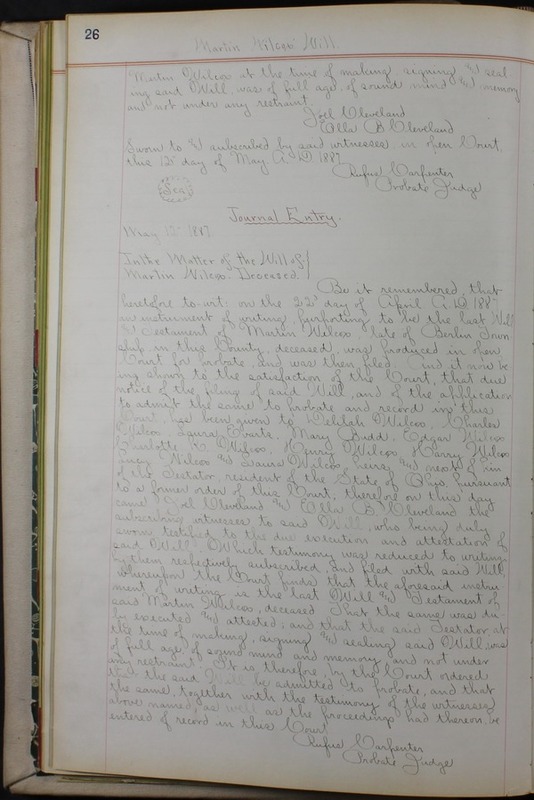 26
Martin Wilcox' Will.
Martin Wilcox at the time of making, signing and seal
ing said Will, was of full age, of sound mind and memory
and not under any restraint.
Joel Cleveland
Ella B Cleveland
Sworn to and subscribed by said witnesses, in open Court,
this 12th day of May A.D 1887.
Rufus Carpenter
Probate Judge
Seal
Journal Entry.
May 12th 1887
In the Matter of the Will of
Martin Wilcox Deceased.
Be it remembered, that
heretofore to-wit: on the 22d day of April A. D. 1887
an instrument of writing, purporting to be the last Will
and Testament of Martin Wilcox, late of Berlin Town
ship in this County, deceased, was produced in open
Court for probate, and was then filed. And it now be
ing shown to the satisfaction of the Court, that due
notice of the filing of said Will, and of the application
to admit the same to probate and record in this
Court, has been given to Delilah Wilcox, Charles
Wilcox, Laura Mary Budd, Edgar Wilcox
Charlotte Wilcox, Henry Wilcox, Harry Wilcox
Wilcox and Laura Wilcox, heirs and next of kin
of the Testator, resident of the State of Ohio, pursuant
to a former order of this Court, therefore on this day
came Joel Cleveland and Ella B Cleveland the
subscribing witnesses to said Will, who being duly
sworn testified to the due execution and attestation of
said Will. Which testimony was reduced to writing
by them respectively subscribed and filed with said Will,
whereupon the Court finds that the aforesaid instru
ment of writing is the last Will and Testament of
said Martin Wilcox, deceased. That the same was du
ly executed and attested; and that the said Testator at
the time of making, signing and sealing said Will, was
of full age, of sound mind and memory and not under
any restraint. It is therefore, by the Court ordered
that the said Will be admitted to probate, and that
the same, together with the testimony of the witnesses
above named, as well as the proceedings had thereon, be
entered of record in this Court
Rufus Carpenter
Probate Judge